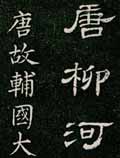 唐柳河
唐故輔國大